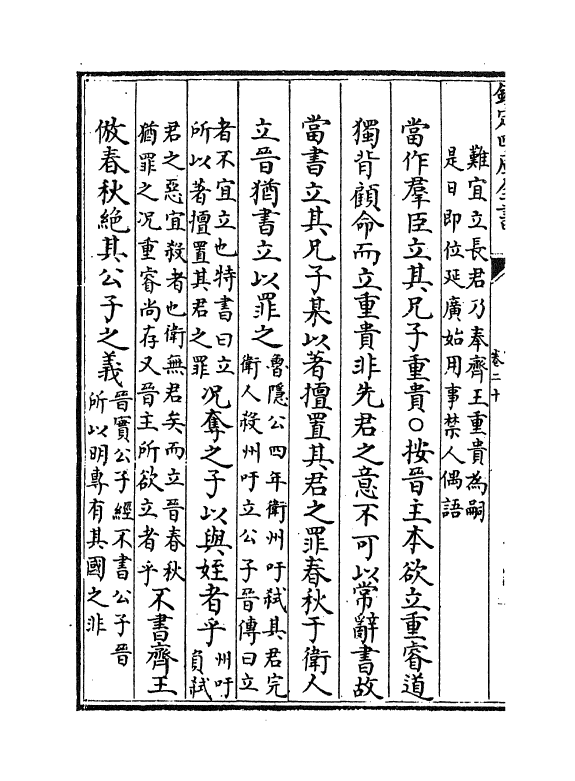 欽定四庫全書
卷二十
難宜立長君乃奉齊王重貴為嗣
是日即位延廣始用事禁人偶語
當作羣臣立其兄子重貴○按晉主本欲立重睿道
獨背顧命而立重貴非先君之意不可以常辭書故
當書立其兄子某以著擅置其君之罪春秋于衛人
立晉猶書立以罪之
魯隱公四年衛州吁弑其君完
衛人殺州吁立公子晉傳曰立
者不宜立也特書曰立
所以著擅置其君之罪
况奪之子以與姪者乎
州吁
負弑
君之惡宜殺者也衛無君矣而立晉春秋
猶罪之况重睿尚存又晉主所欲立者乎
不書齊王
倣春秋絶其公子之義
晉實公子經不書公子晉
所以明專有其國之非